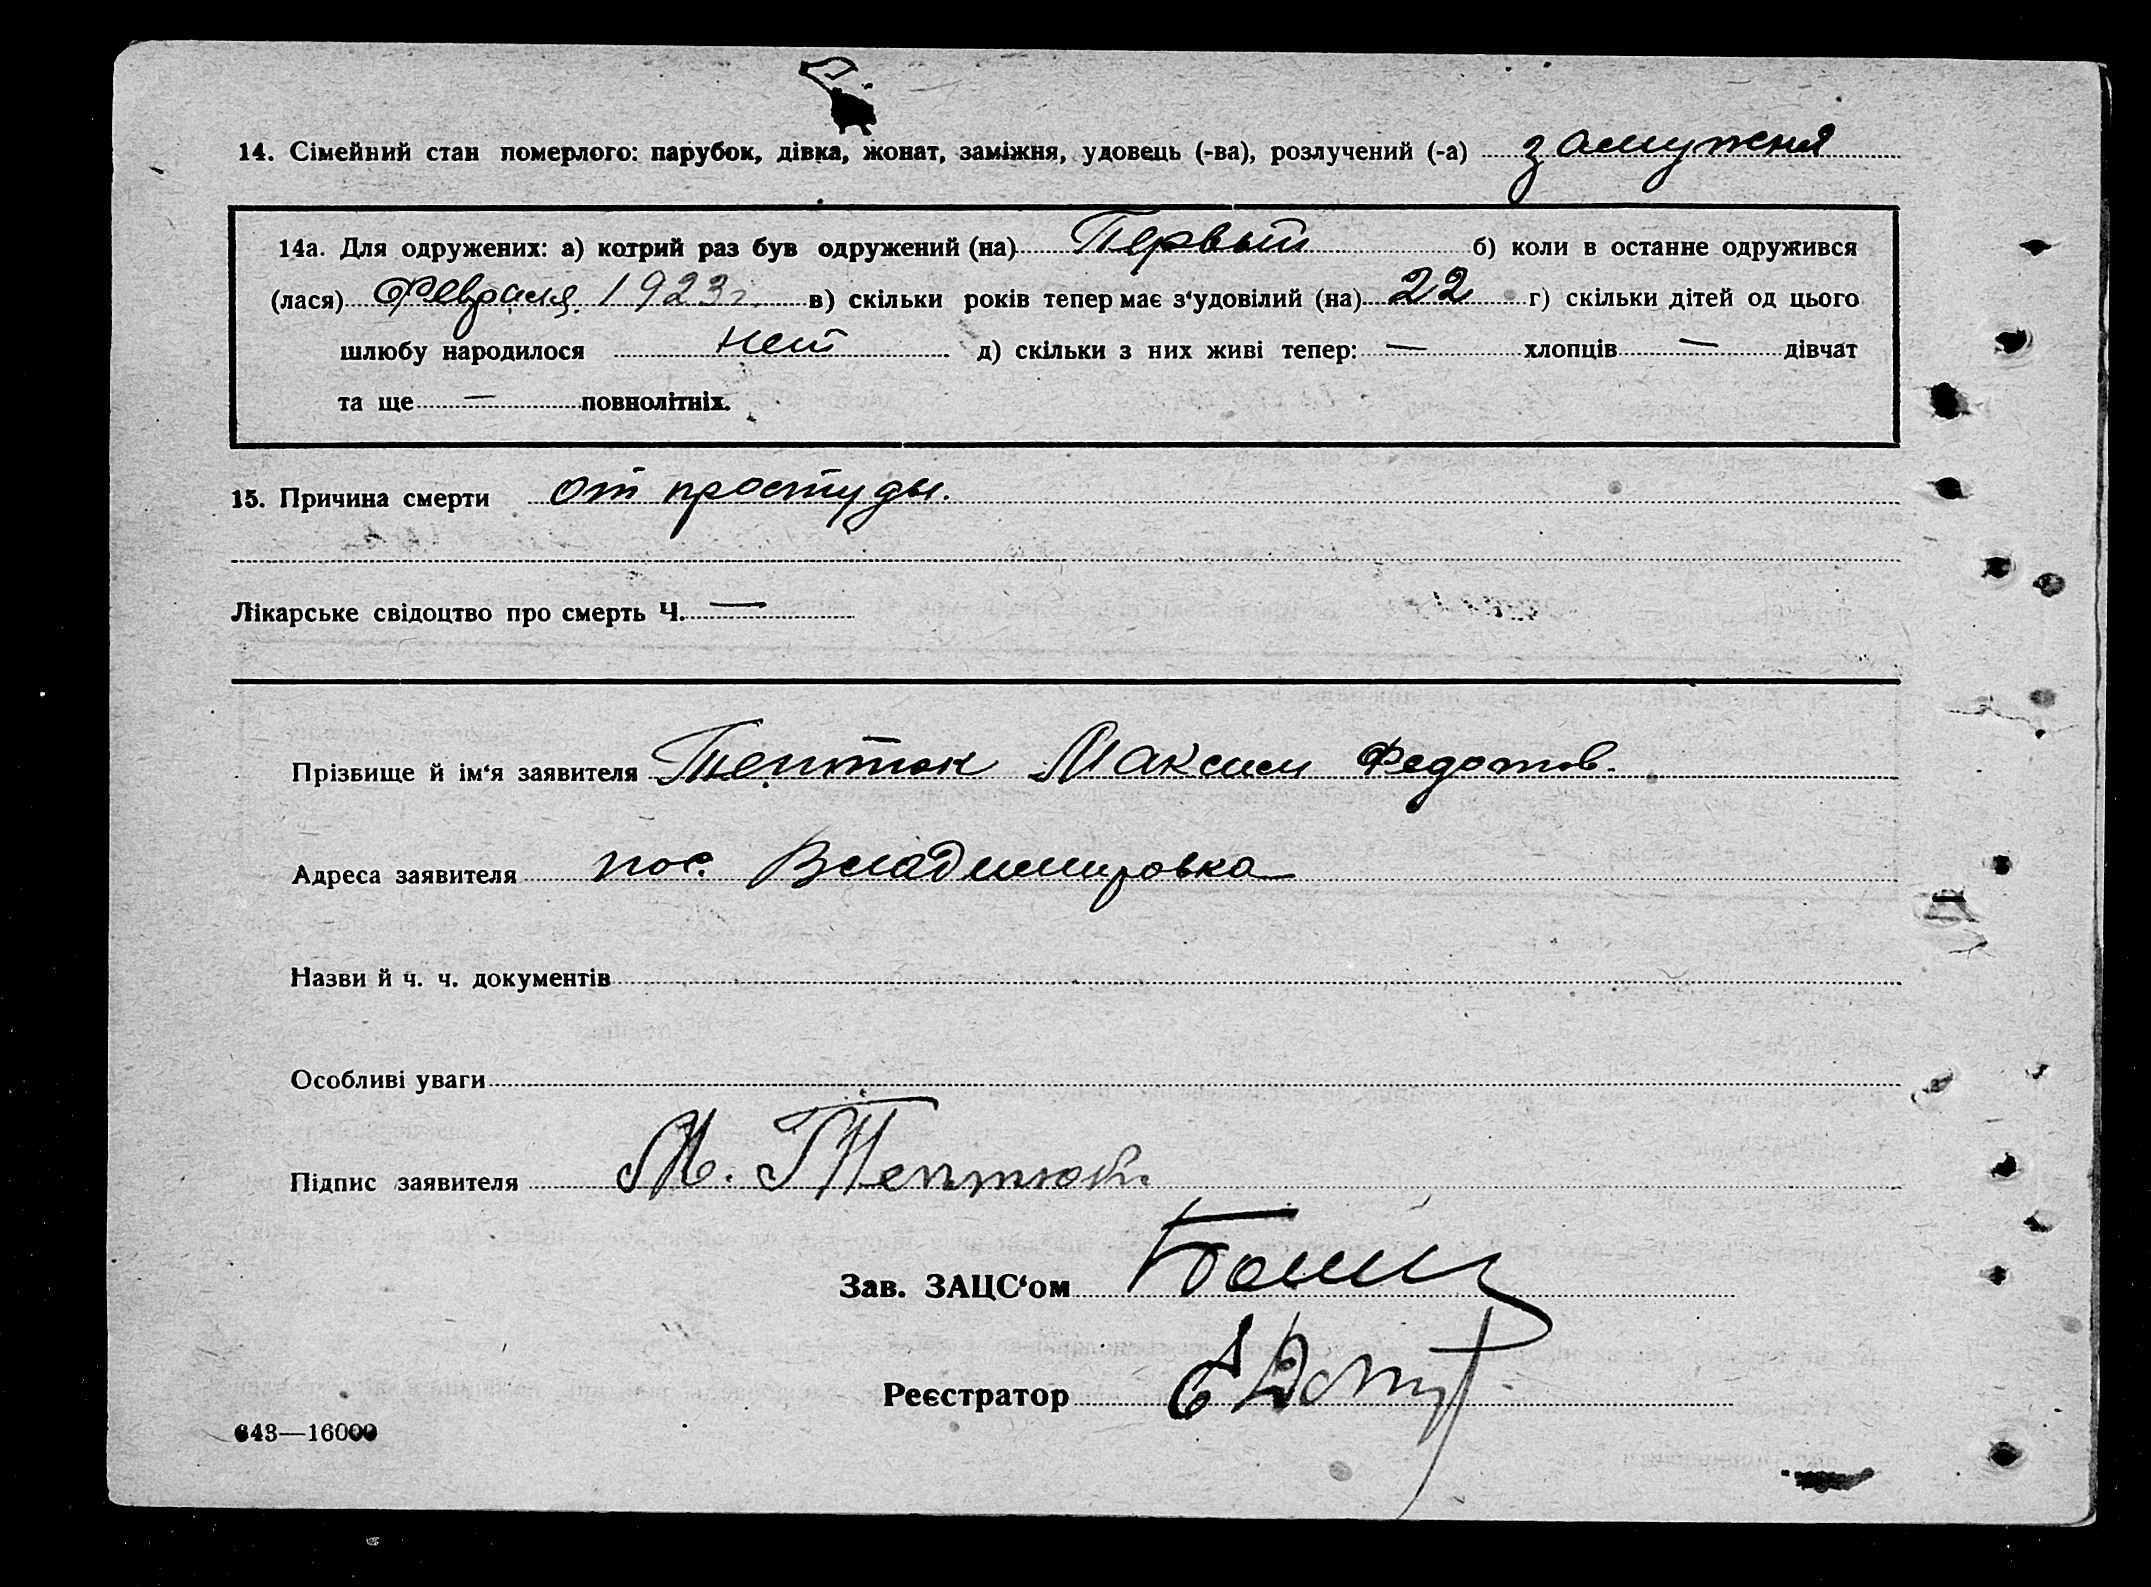 14. Сімейний стан померлого: парубок, дівка, жонат, заміжня, удовець (-ва), розлучений (-а) замужняя
14а. Для одружених: а) котрий раз був одружений (на) Первый б) коли в останнє одружився
(лася) Февраля 1923 г. в) скільки років тепер має з‘удовілий (на) 22 г) скільки дітей од цього
шлюбу народилося нет д) скільки з них живі тепер: — хлопців — дівчат
та ще — повнолітніх.
15. Причина смерти от простуды.
Лікарське свідоцтво про смерть Ч. —
Прізвище й ім‘я заявителя Тептюк Максим Федотов.
Адреса заявителя пос. Владимировка
Назви й ч. ч. документів
Особливі уваги
Підпис заявителя М. Тептюк.
Зав. ЗАЦС‘ом
Реєстратор
643—16000